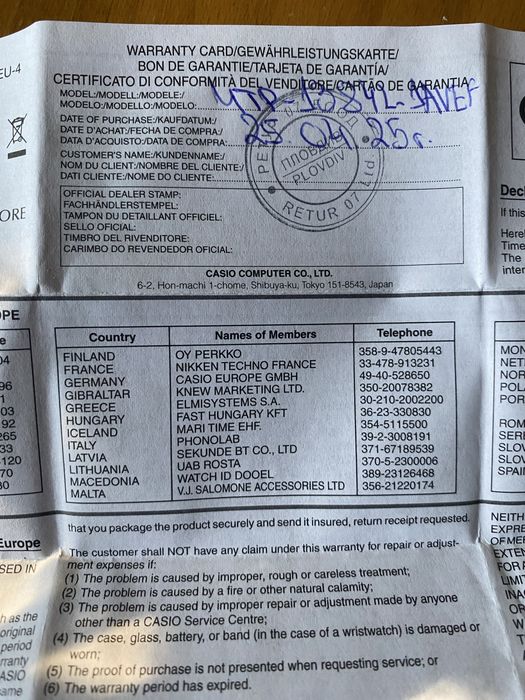 EU-4
WARRANTY CARD/GEWÄHRLEISTUNGSKARTE/
BON DE GARANTIE/TARJETA DE GARANTÍA/
CERTIFICATO DI CONFORMITÀ DEL VENDITORE/CARTÃO DE GARANTIA
MODEL:/MODELL:/MODELE:/
MODELO:/MODELLO:/MODELO:
DATE OF PURCHASE:/KAUFDATUM:/
DATE D'ACHAT:/FECHA DE COMPRA:/
DATA D'ACQUISTO:/DATA DE COMPRA:
25 04 25г.
CUSTOMER'S NAME:/KUNDENNAME:/
NOM DU CLIENT:/NOMBRE DEL CLIENTE:/
DATI CLIENTE:/NOME DO CLIENTE:
ПЛОВДИВ
PLOVDIV
RETUR 07 Ltd.
OFFICIAL DEALER STAMP:
FACHHÄNDLERSTEMPEL:
TAMPON DU DETAILLANT OFFICIEL:
SELLO OFICIAL:
TIMBRO DEL RIVENDITORE:
CARIMBO DO REVENDEDOR OFICIAL:
CASIO COMPUTER CO., LTD.
6-2, Hon-machi 1-chome, Shibuya-ku, Tokyo 151-8543, Japan
Country Names of Members Telephone
FINLAND OY PERKKO 358-9-47805443
FRANCE NIKKEN TECHNO FRANCE 33-478-913231
GERMANY CASIO EUROPE GMBH 49-40-528650
GIBRALTAR KNEW MARKETING LTD. 350-20078382
GREECE ELMISYSTEMS S.A. 30-210-2002200
HUNGARY FAST HUNGARY KFT 36-23-330830
ICELAND MARI TIME EHF. 354-5115500
ITALY PHONOLAB 39-2-3008191
LATVIA SEKUNDE BT CO., LTD 371-67189539
LITHUANIA UAB ROSTA 370-5-2300006
MACEDONIA WATCH ID DOOEL 389-23126468
MALTA V.J. SALOMONE ACCESSORIES LTD 356-21220174
that you package the product securely and send it insured, return receipt requested.
The customer shall NOT have any claim under this warranty for repair or adjust-
ment expenses if:
(1) The problem is caused by improper, rough or careless treatment;
(2) The problem is caused by a fire or other natural calamity;
(3) The problem is caused by improper repair or adjustment made by anyone
other than a CASIO Service Centre;
(4) The case, glass, battery, or band (in the case of a wristwatch) is damaged or
worn;
(5) The proof of purchase is not presented when requesting service; or
(6) The warranty period has expired.
Europe